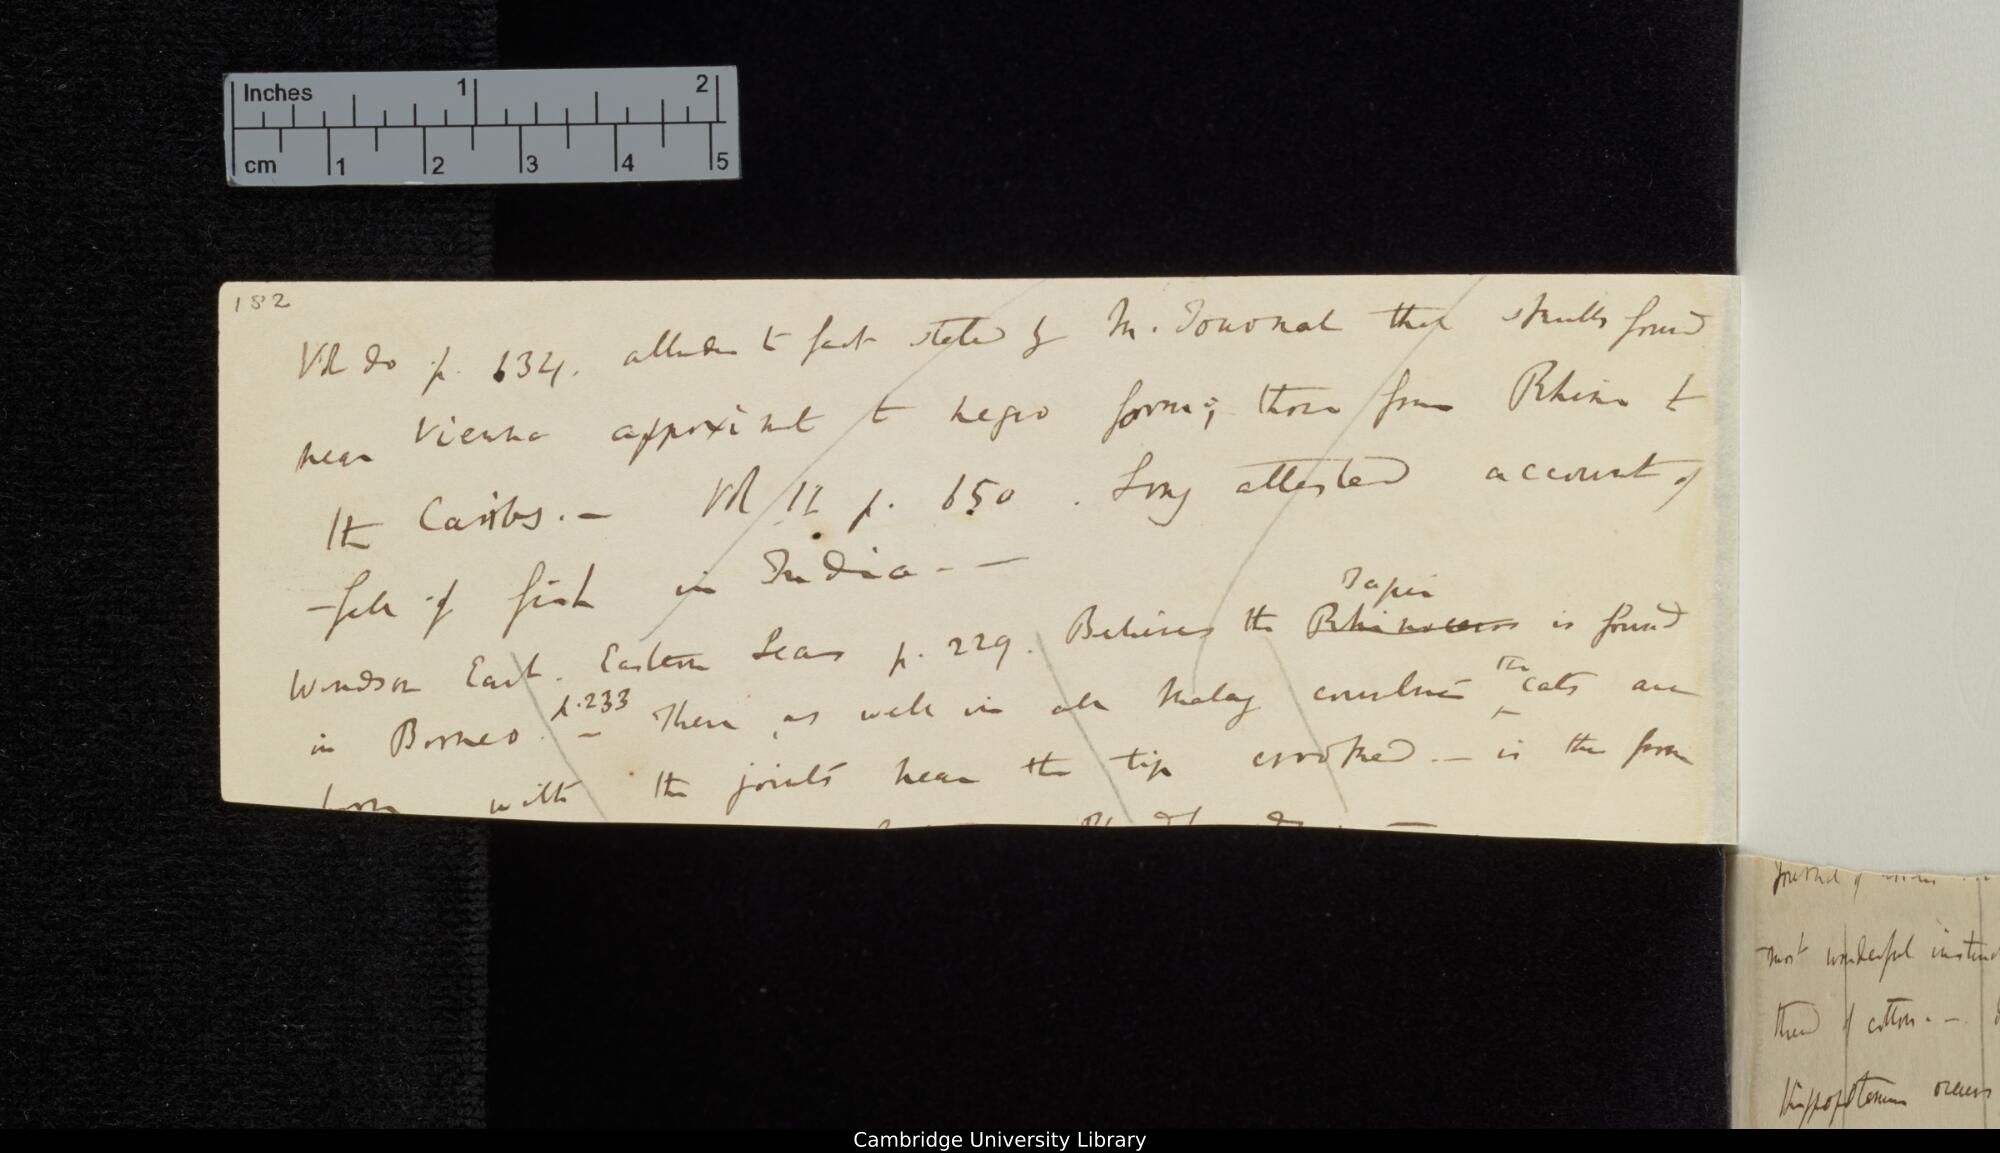 Inches 1 2
cm 1 2 3 4 5
182
Vol do p. 634. alludes to fact stated by M. Tournal that skulls found
near Vienna approximate to negro forms; those from Rhine to
the Caribs. — Vol II p. 650. Long attested account of
—fall of fish in India. — —
Tapir
Windsor Earl. Eastern Seas p. 229. Believes the Rhinoceros is found
p. 233 the
in Borneo. — There, as well in all Malay countries cats are
born with the joints near the tip crooked. — is the form
Journal of
most wonderful
thread of cotton. —
Hippopotamus occurs
Cambridge University Library